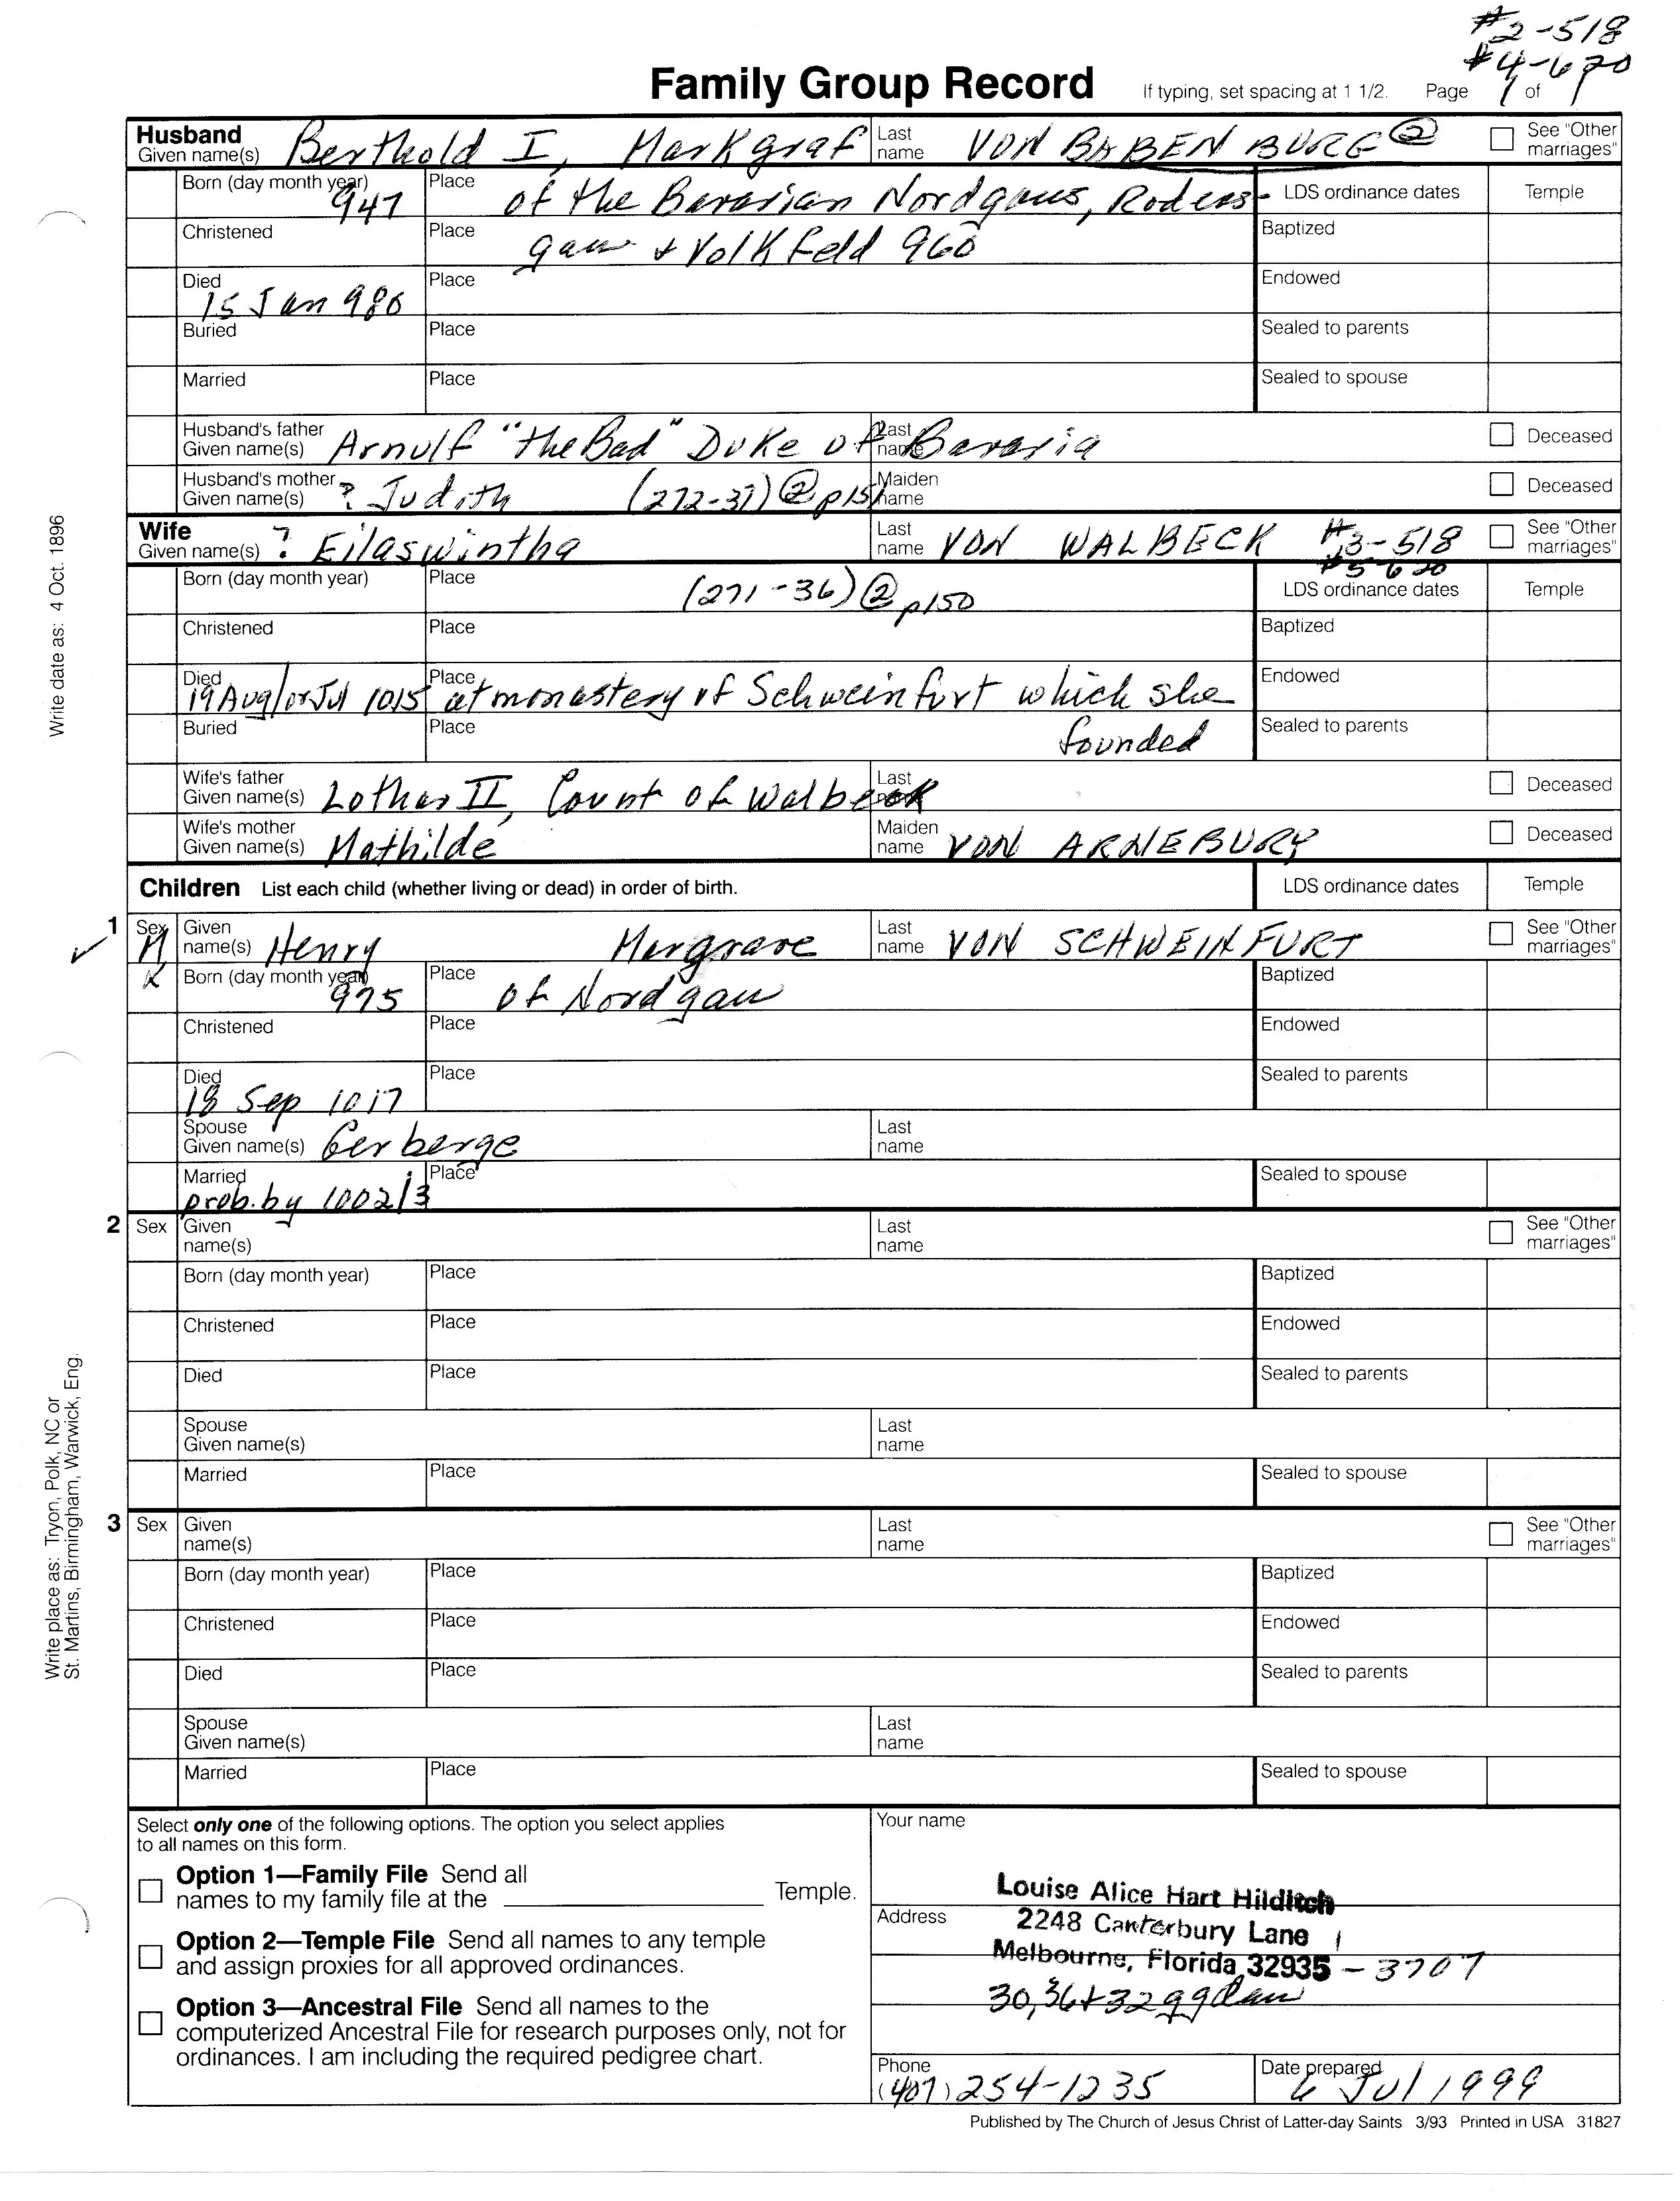 #2-518
#4-620
Family Group Record If typing, set spacing at 1 1/2. Page 1 of 1
Husband Given name(s) Berthold I, Markgraf Last name VON BABENBURG ② See "Other marriages"
Born (day month year) 947 Place of the Bavarian Nordgaus, Rodens- LDS ordinance dates Temple
Christened Place gau + Volkfeld 960 Baptized
Died 15 Jan 980 Place Endowed
Buried Place Sealed to parents
Married Place Sealed to spouse
Husband's father Given name(s) Arnulf "the Bad" Duke of Bavaria Last name Deceased
Husband's mother Given name(s) ? Judith (272-37) ② p151 Maiden name Deceased
Wife Given name(s) ? Eilaswintha Last name VON WALBECK #3-518 See "Other marriages"
#5-620
Born (day month year) Place (271-36) ② p150 LDS ordinance dates Temple
Christened Place Baptized
Died 19 Aug/or Jul 1015 Place at monastery of Schweinfurt which she Endowed
Buried Place founded Sealed to parents
Wife's father Given name(s) Lothar II, Count of Walbeck Last Deceased
Wife's mother Given name(s) Mathilde Maiden name VON ARNEBURG Deceased
Children List each child (whether living or dead) in order of birth. LDS ordinance dates Temple
1 Sex M Given name(s) Henry Margrave Last name VON SCHWEINFURT See "Other marriages"
Born (day month year) 975 Place of Nordgau Baptized
Christened Place Endowed
Died 18 Sep 1017 Place Sealed to parents
Spouse Given name(s) Gerberge Last name
Married prob. by 1002/3 Place Sealed to spouse
2 Sex Given name(s) Last name See "Other marriages"
Born (day month year) Place Baptized
Christened Place Endowed
Died Place Sealed to parents
Spouse Given name(s) Last name
Married Place Sealed to spouse
3 Sex Given name(s) Last name See "Other marriages"
Born (day month year) Place Baptized
Christened Place Endowed
Died Place Sealed to parents
Spouse Given name(s) Last name
Married Place Sealed to spouse
Write date as: 4 Oct. 1896
Write place as: Tryon, Polk, NC or
St. Martins, Birmingham, Warwick, Eng.
Select only one of the following options. The option you select applies
to all names on this form.
Option 1—Family File Send all
names to my family file at the Temple.
Option 2—Temple File Send all names to any temple
and assign proxies for all approved ordinances.
Option 3—Ancestral File Send all names to the
computerized Ancestral File for research purposes only, not for
ordinances. I am including the required pedigree chart.
Your name
Louise Alice Hart Hilditch
Address 2248 Canterbury Lane
Melbourne, Florida 32935 - 3707
30, 36+32
Phone (407) 254-1235 Date prepared 6 Jul 1999
Published by The Church of Jesus Christ of Latter-day Saints 3/93 Printed in USA 31827